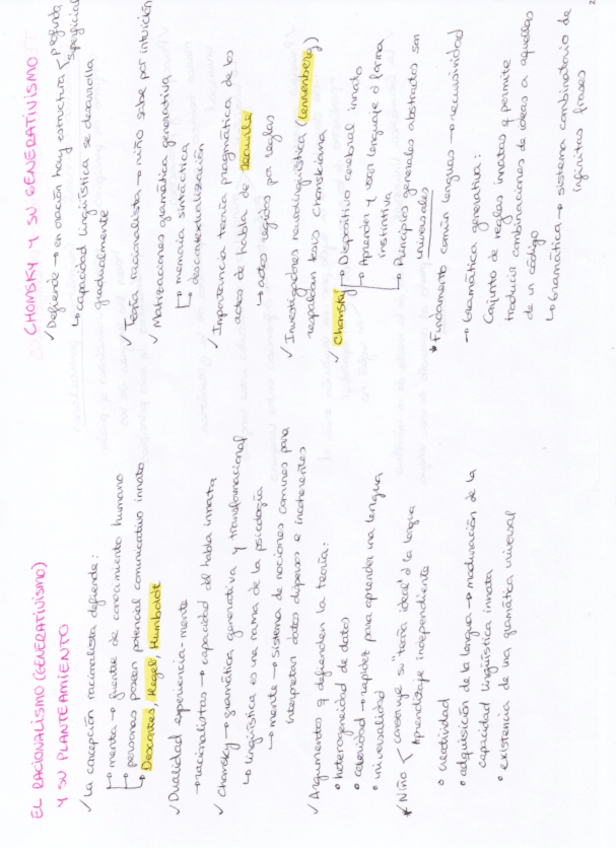 EL RACIONALISMO (GENERATIVISMO)
Y SU PLANTEAMIENTO
✓ La concepción racionalista defiende:
→ mente → fuente de conocimiento humano
→ personas poseen potencial comunicativo innato
→ Descartes, Hegel, Humboldt
✓ Dualidad experiencia-mente
→ racionalistas → capacidad del habla innata
✓ Chomsky → gramática generativa y transformacional
↳ lingüística es una rama de la psicología
→ mente → sistema de nociones comunes para
interpretar datos dispersos e incoherentes
✓ Argumentos q defienden la teoría:
• heterogeneidad de datos
• celeridad → rapidez para aprender una lengua
• universalidad
* Niño < construye su "teoría ideal" d la lengua
Aprendizaje independiente
• creatividad
• adquisición de la lengua → maduración de la
capacidad lingüística innata
• existencia de una gramática universal
CHOMSKY Y SU GENERATIVISMO
✓ Defiende → en oración hay estructura < profunda
superficial
↳ capacidad lingüística se desarrolla
gradualmente
✓ Teoría racionalista → niño sabe por intuición
✓ Matizaciones gramática generativa
↳ memoria sintáctica
descontextualización
✓ Importancia teoría pragmática de los
actos de habla de
↳ actos regidos por reglas
✓ Investigadores neurolingüística (Lennenberg)
respaldan tesis Chomskiana
✓ Chomsky → Dispositivo cerebral innato
→ Aprender y usar lenguaje d forma
instintiva
→ Principios generales abstractos son
universales
* Fundamento común lenguas → recursividad
→ Gramática generativa:
Conjunto de reglas innatas q permite
traducir combinaciones de ideas a aquellas
de un código
↳ Gramática → sistema combinatorio de
infinitas frases
2